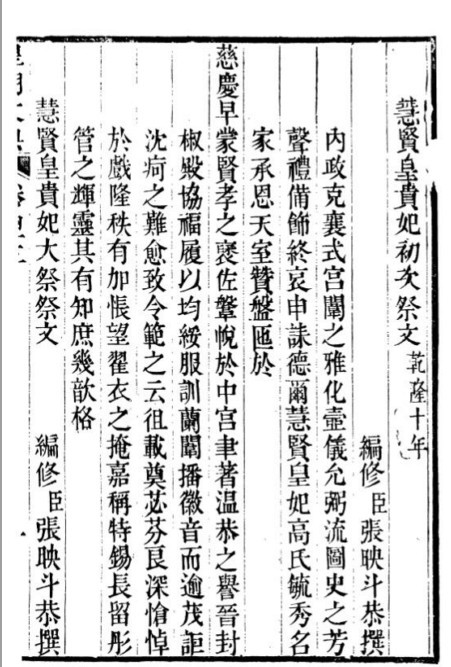 慧賢皇貴妃初次祭文 乾隆十年
編修臣張映斗恭撰
內政克襄式宮闈之雅化壼儀允弼流圖史之芳
聲禮備飾終哀申誄德爾慧賢皇妃高氏毓秀名
家承恩天室贊盤匜於
慈慶早蒙賢孝之褒佐鞶帨於中宮聿著温恭之譽晉封
椒殿協福履以均綏服訓蘭闈播徽音而逾茂詎
沈疴之難愈致令範之云徂載奠苾芬良深愴悼
於戲隆秩有加悵望翟衣之掩嘉稱特錫長留彤
管之輝靈其有知庶幾歆格
慧賢皇貴妃大祭祭文
編修臣張映斗恭撰